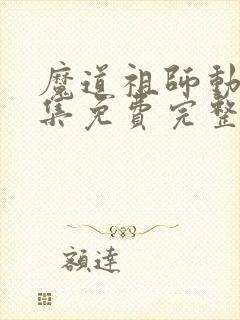 魔道祖師動
集免費完整
額達